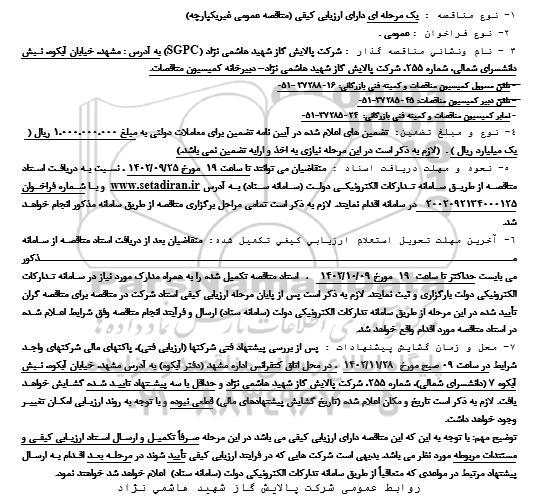 ۱- نوع مناقصه : یک مرحله ای دارای ارزیابی کیفی (متناقصه عمومی غیریکپارچه)
۲- نوع فراخوان : عمومی .
۳- نام ونشانی مناقصه گذار : شرکت پالایش گاز شهید هاشمی نژاد (SGPC) به آدرس : مشهد، خیابان آبکوه، نبش
دانشسرای شمالی، شماره ۲۵۵، شرکت پالایش گاز شهید هاشمی نژاد – دبیرخانه کمیسیون مناقصات.
- تلفن مسوول کمیسیون مناقصات و کمیته فنی بازرگانی: ۱۶-۳۷۲۸۸-۰۵۱
- تلفن دبیر کمیسیون مناقصات: ۴۵-۳۷۲۸۵-۰۵۱
- نمابر کمیسیون مناقصات و کمیته فنی بازرگانی: ۲۴-۳۷۲۸۵-۰۵۱
۴- نوع و مبلغ تضمین: تضمین های اعلام شده در آیین نامه تضمین برای معاملات دولتی به مبلغ ۱.۰۰۰.۰۰۰.۰۰۰ ریال (
یک میلیارد ریال ) . (لازم به ذکر است در این مرحله نیازی به اخذ و ارایه تضمین نمی باشد)
۵- نحوه و مهلت دریافت اسناد : متقاضیان می توانند تا ساعت ۱۹ مورخ ۱۴۰۲/۰۹/۲۵ ، نسبت به دریافت اسناد
متاقصه از طریق سامانه تدارکات الکترونیکی دولت (سامانه ستاد) به آدرس www.setadiran.ir و با شماره فراخوان
۲۰۰۲۰۹۲۱۳۴۰۰۰۱۲۵ در سامانه اقدام نمایند. لازم به ذکر است تمامی مراحل برگزاری مناقصه از طریق سامانه مذکور انجام خواهد
شد.
۶- آخرین مهلت تحویل استعلام ارزیابی کیفی تکمیل شده: متقاضیان بعد از دریافت اسناد مناقصه از سامانه
مذکور
می بایست حداکثر تا ساعت ۱۹ مورخ ۱۴۰۲/۱۰/۰۹ ، اسناد مناقصه تکمیل شده را به همراه مدارک مورد نیاز در سامانه تدارکات
الکترونیکی دولت بارگزاری و ثبت نمایند. لازم به ذکر است پس از پایان مرحله ارزیابی کیفی اسناد شرکت در مناقصه برای مناقصه گران
تأیید شده در این مرحله از طریق سامانه تدارکات الکترونیکی دولت (سامانه ستاد) ارسال و فرآیند انجام مناقصه وفق شرایط اعلام شده
در اسناد مناقصه مورد اقدام واقع خواهد شد.
۷- محل و زمان گشایش پیشنهادات : پس از بررسی پیشنهاد فنی شرکتها (ارزیابی فنی)، پاکتهای مالی شرکتهای واجد
شرایط در ساعت ۰۹ صبح مورخ ۱۴۰۲/۱۱/۲۸ ، در محل اتاق کنفرانس اداره مشهد (دفتر آبکوه) به آدرس مشهد، خیابان آبکوه، نبش
آبکوه ۷ (دانشسرای شمالی)، شماره ۲۵۵، شرکت پالایش گاز شهید هاشمی نژاد و حداقل با سه پیشنهاد تایید شده گشایش خواهد
یافت. لازم به ذکر است تاریخ و مکان اعلام شده (تاریخ گشایش پیشنهادهای مالی) قطعی نبوده و با توجه به روند ارزیابی امکان تغییر
وجود خواهد داشت.
توضیح مهم: با توجه به این که این مناقصه دارای ارزیابی کیفی می باشد در این مرحله صرفاً تکمیل و ارسال اسناد ارزیابی کیفی و
مستندات مربوطه مورد نظر می باشد. بدیهی است شرکت هایی که در فرایند ارزیابی کیفی تأیید شوند در مرحله بعد اقدام به ارسال
پیشنهاد مرتبط در مواعدی که متعاقباً از طریق سامانه تدارکات الکترونیکی دولت (سامانه ستاد) اعلام خواهد شد خواهند نمود.
روابط عمومی شرکت پالایش گاز شهید هاشمی نژاد